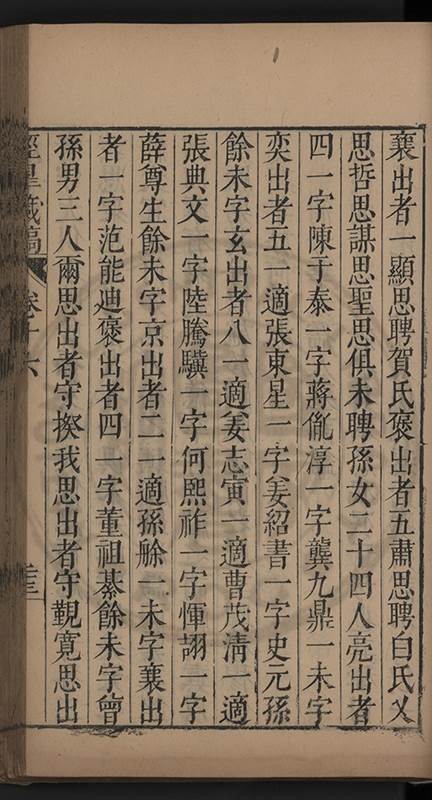 襄出者一顯思聘賀氏褒出者五肅思聘白氏乂
思哲思謀思聖思俱未聘孫女二十四人亮出者
四一字陳于泰一字蔣胤淳一字龔九鼎一未字
奕出者五一適張東星一字姜紹書一字史元孫
餘未字玄出者八一適姜志寅一適曹茂清一適
張典文一字陸騰驥一字何熙祚一字惲詡一字
薛尊生餘未字京出者二一適孫艅一未字襄出
者一字范能迪褒出者四一字董祖綦餘未字曾
孫男三人爾思出者守揆我思出者守觀寬思出
經皐藏稿 卷十六